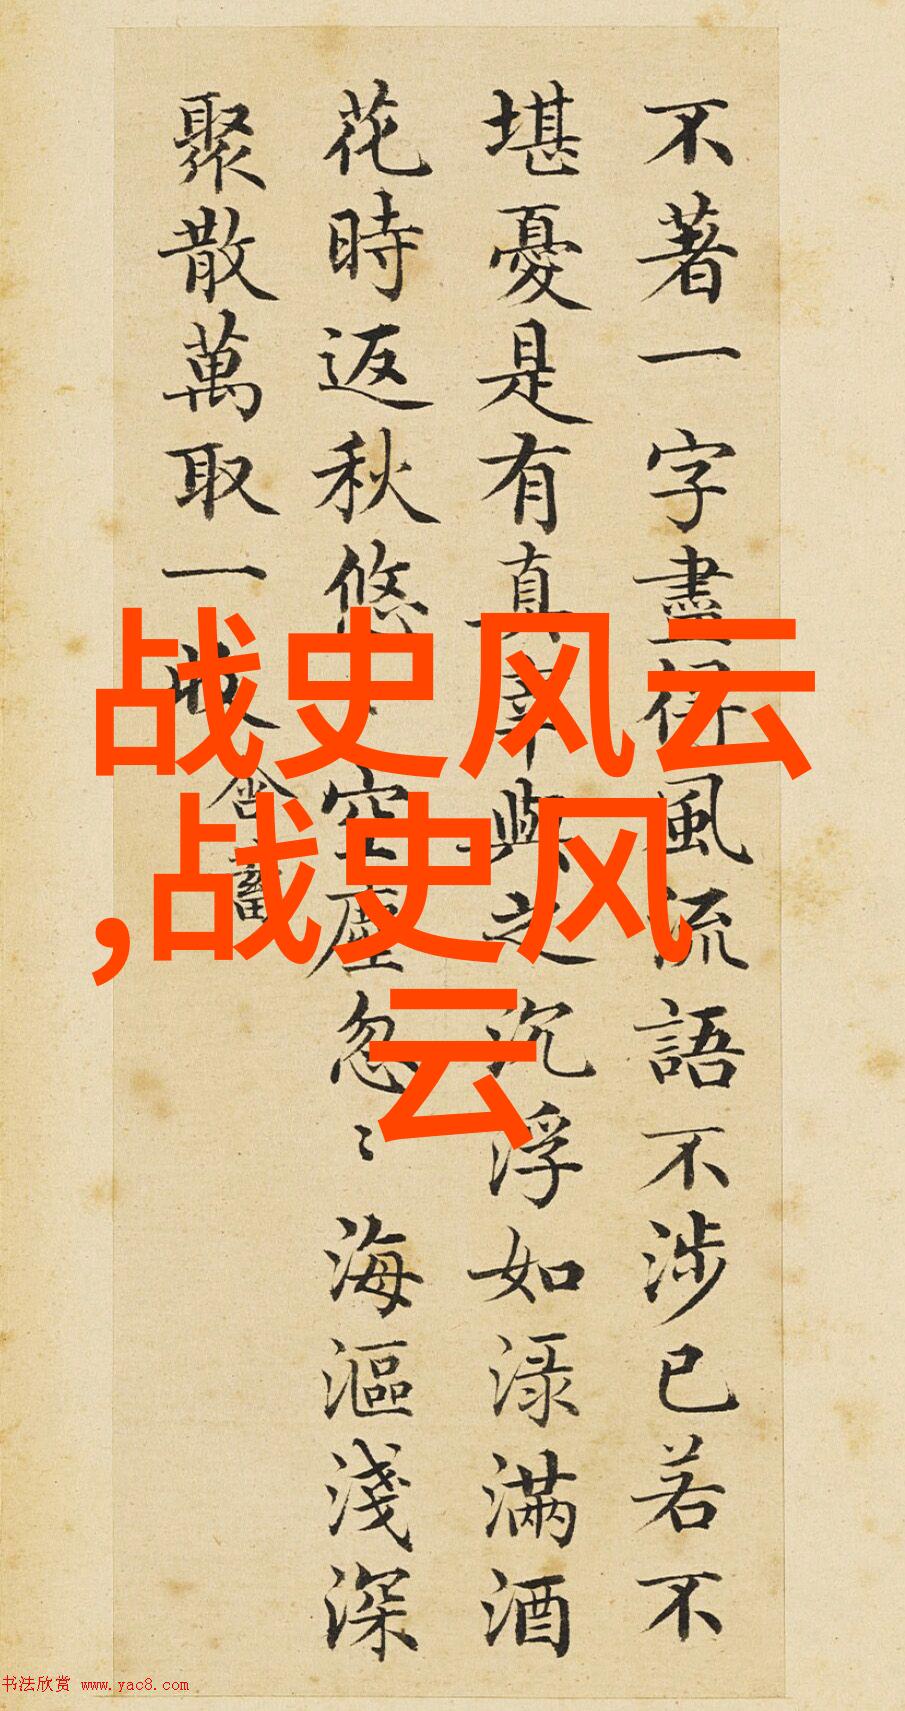 不著一字盡得風流語不涉已若不
堪憂是有真宰與之沉浮如渌滿酒
花時返秋悠〻空塵忽〻海漚淺深
聚散萬取一收
含蓄
战史风云
,战史风
云
书法欣赏 www.yac8.com